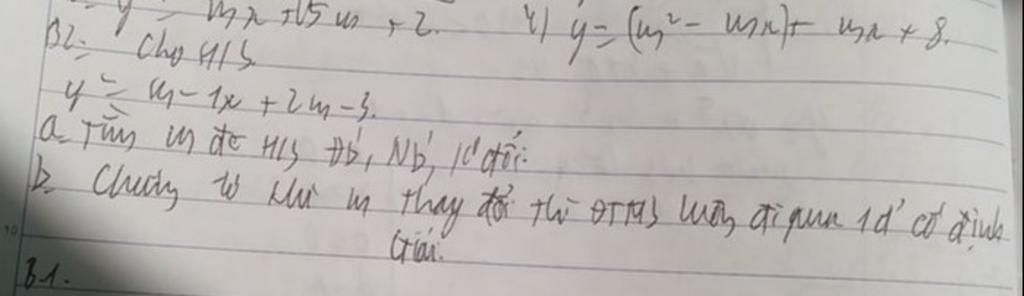 y = mx + 15m + 2. 4) y = (m² - mx) + mx + 8.
B2: Cho H/S
y = m - 1x + 2m - 3.
a. Tìm m để H/S Đb, Nb, K đổi.
b. Chứng tỏ khi m thay đổi thì ĐTHS luôn đi qua 1đ' cố định
Giải.
10
B1.